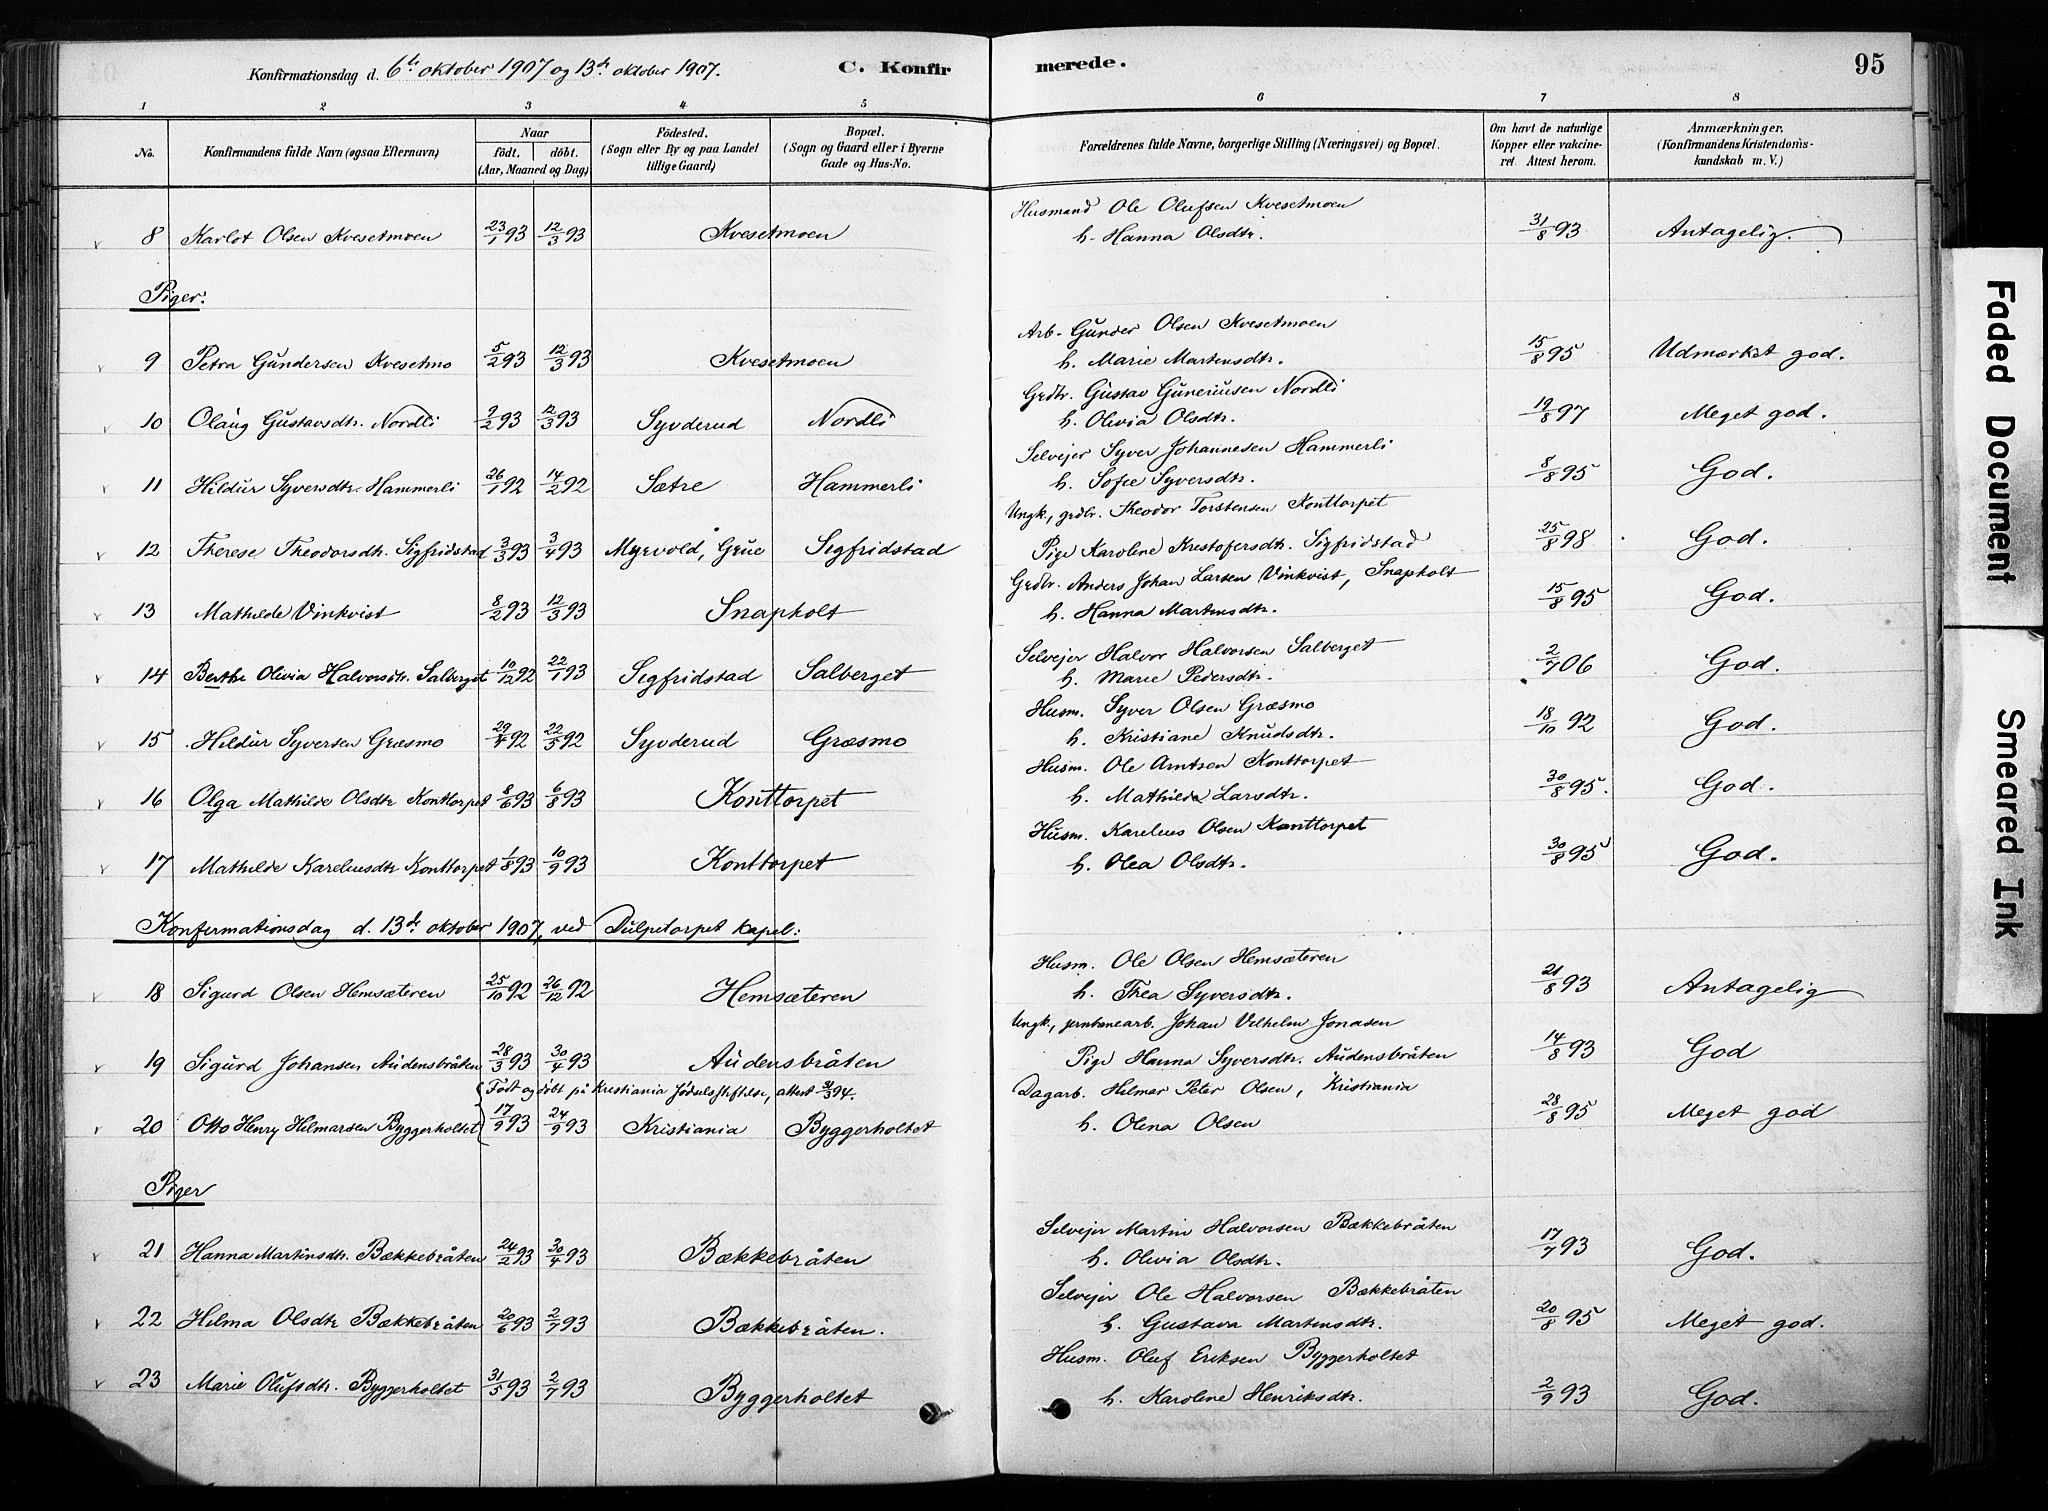 Konfirmationsdag d. 6te oktober 1907 og 13de oktober 1907. C. Konfirmerede. 95
1 2 3 4 5 6 7 8
No. Konfirmandens fulde Navn (ogsaa Efternavn) Naar født. døbt. (Aar, Maaned og Dag) Fødested. (Sogn eller By og paa Landet tillige Gaard) Bopæl. (Sogn og Gaard eller i Byerne Gade og Hus-No.) Forældrenes fulde Navne, borgerlige Stilling (Næringsvei) og Bopæl. Om havt de naturlige Kopper eller vakcineret. Attest herom. Anmærkninger. (Konfirmandens Kristendomskundskab m. V.)
8 Karlot Olsen Kvesetmoen 23/1 93 12/3 93 Kvesetmoen Husmand Ole Olufsen Kvesetmoen 31/8 93 Antagelig.
h. Hanna Olsdtr.
Piger.
9 Petra Gundersen Kvesetmo 5/2 93 12/3 93 Kvesetmoen Arb. Gunder Olsen Kvesetmoen 15/8 95 Udmærket god.
h. Marie Martensdtr.
10 Olaug Gustavsdtr. Nordli 9/2 93 12/3 93 Syvderud Nordli Grdbr. Gustav Guneriusen Nordli 19/8 97 Meget god.
h. Olivia Olsdtr.
11 Hildur Syversdtr. Hammerli 26/1 92 14/2 92 Sætre Hammerli Selvejer Syver Johannesen Hammerli 8/8 95 God.
h. Sofie Syversdtr.
12 Therese Theodorsdtr. Sigfridstad 3/3 93 3/4 93 Myrvold, Grue Sigfridstad Ungk., grdbr. Theodor Torstensen Konttorpet 25/8 98 God.
Pige Karoline Kristofersdtr. Sigfridstad
13 Mathilde Vinkvist 8/2 93 12/3 93 Snapholt Grdbr. Anders Johan Larsen Vinkvist, Snapholt 15/8 95 God.
h. Hanna Martinsdtr.
14 Berthe Olivia Halvorsdtr. Salberget 10/12 92 22/1 93 Sigfridstad Salberget Selvejer Halvor Halvorsen Salberget 2/7 06 God.
h. Marie Pedersdtr.
15 Hildur Syversen Græsmo 29/4 92 22/5 92 Syvderud Græsmo Husm. Syver Olsen Græsmo 18/10 92 God.
h. Kristiane Knudsdtr.
16 Olga Mathilde Olsdtr Konttorpet 8/6 93 6/8 93 Konttorpet Husm. Ole Arntsen Konttorpet 30/8 95. God.
h. Mathilde Larsdtr.
17 Mathilde Kareliusdtr Konttorpet 1/8 93 10/9 93 Konttorpet Husm. Karelius Olsen Konttorpet 30/8 95 God.
h. Olea Olsdtr.
Konfirmationsdag d. 13de oktober 1907, ved Tulpetorpet kapel:
18 Sigurd Olsen Hemsæteren 25/10 92 26/12 92 Hemsæteren Husm. Ole Olsen Hemsæteren 21/8 93 Antagelig
h. Thea Syversdtr.
19 Sigurd Johansen Audensbråten 28/3 93 30/4 93 Audensbråten Ungk., jernbanearb. Johan Vilhelm Jonasen 14/8 93 God
Pige Hanna Syversdtr. Audensbråten
Født og døbt på Kristiania Fødselsstiftelse, attest 94.
20 Otto Henry Hilmarsen Byggerholtet 17/9 93 24/9 93 Kristiania Byggerholtet Dagarb. Hilmar Peter Olsen, Kristiania 28/8 95 Meget god
h. Olena Olsen
Piger
21 Hanna Martinsdtr. Bækkebråten 24/2 93 30/4 93 Bækkebråten Selvejer Martin Halvorsen Bækkebråten 17/7 93 God.
h. Olivia Olsdtr.
22 Hilma Olsdtr Bækkebråten 20/6 93 2/7 93 Bækkebråten. Selvejer Ole Halvorsen Bækkebråten 20/8 95 Meget god.
h. Gustava Martinsdtr.
23 Marie Olufsdtr. Byggerholtet 31/5 93 2/7 93 Byggerholtet Husm. Oluf Eriksen Byggerholtet 2/9 93 God.
h. Karoline Henriksdtr.
Faded Document
Smeared Ink